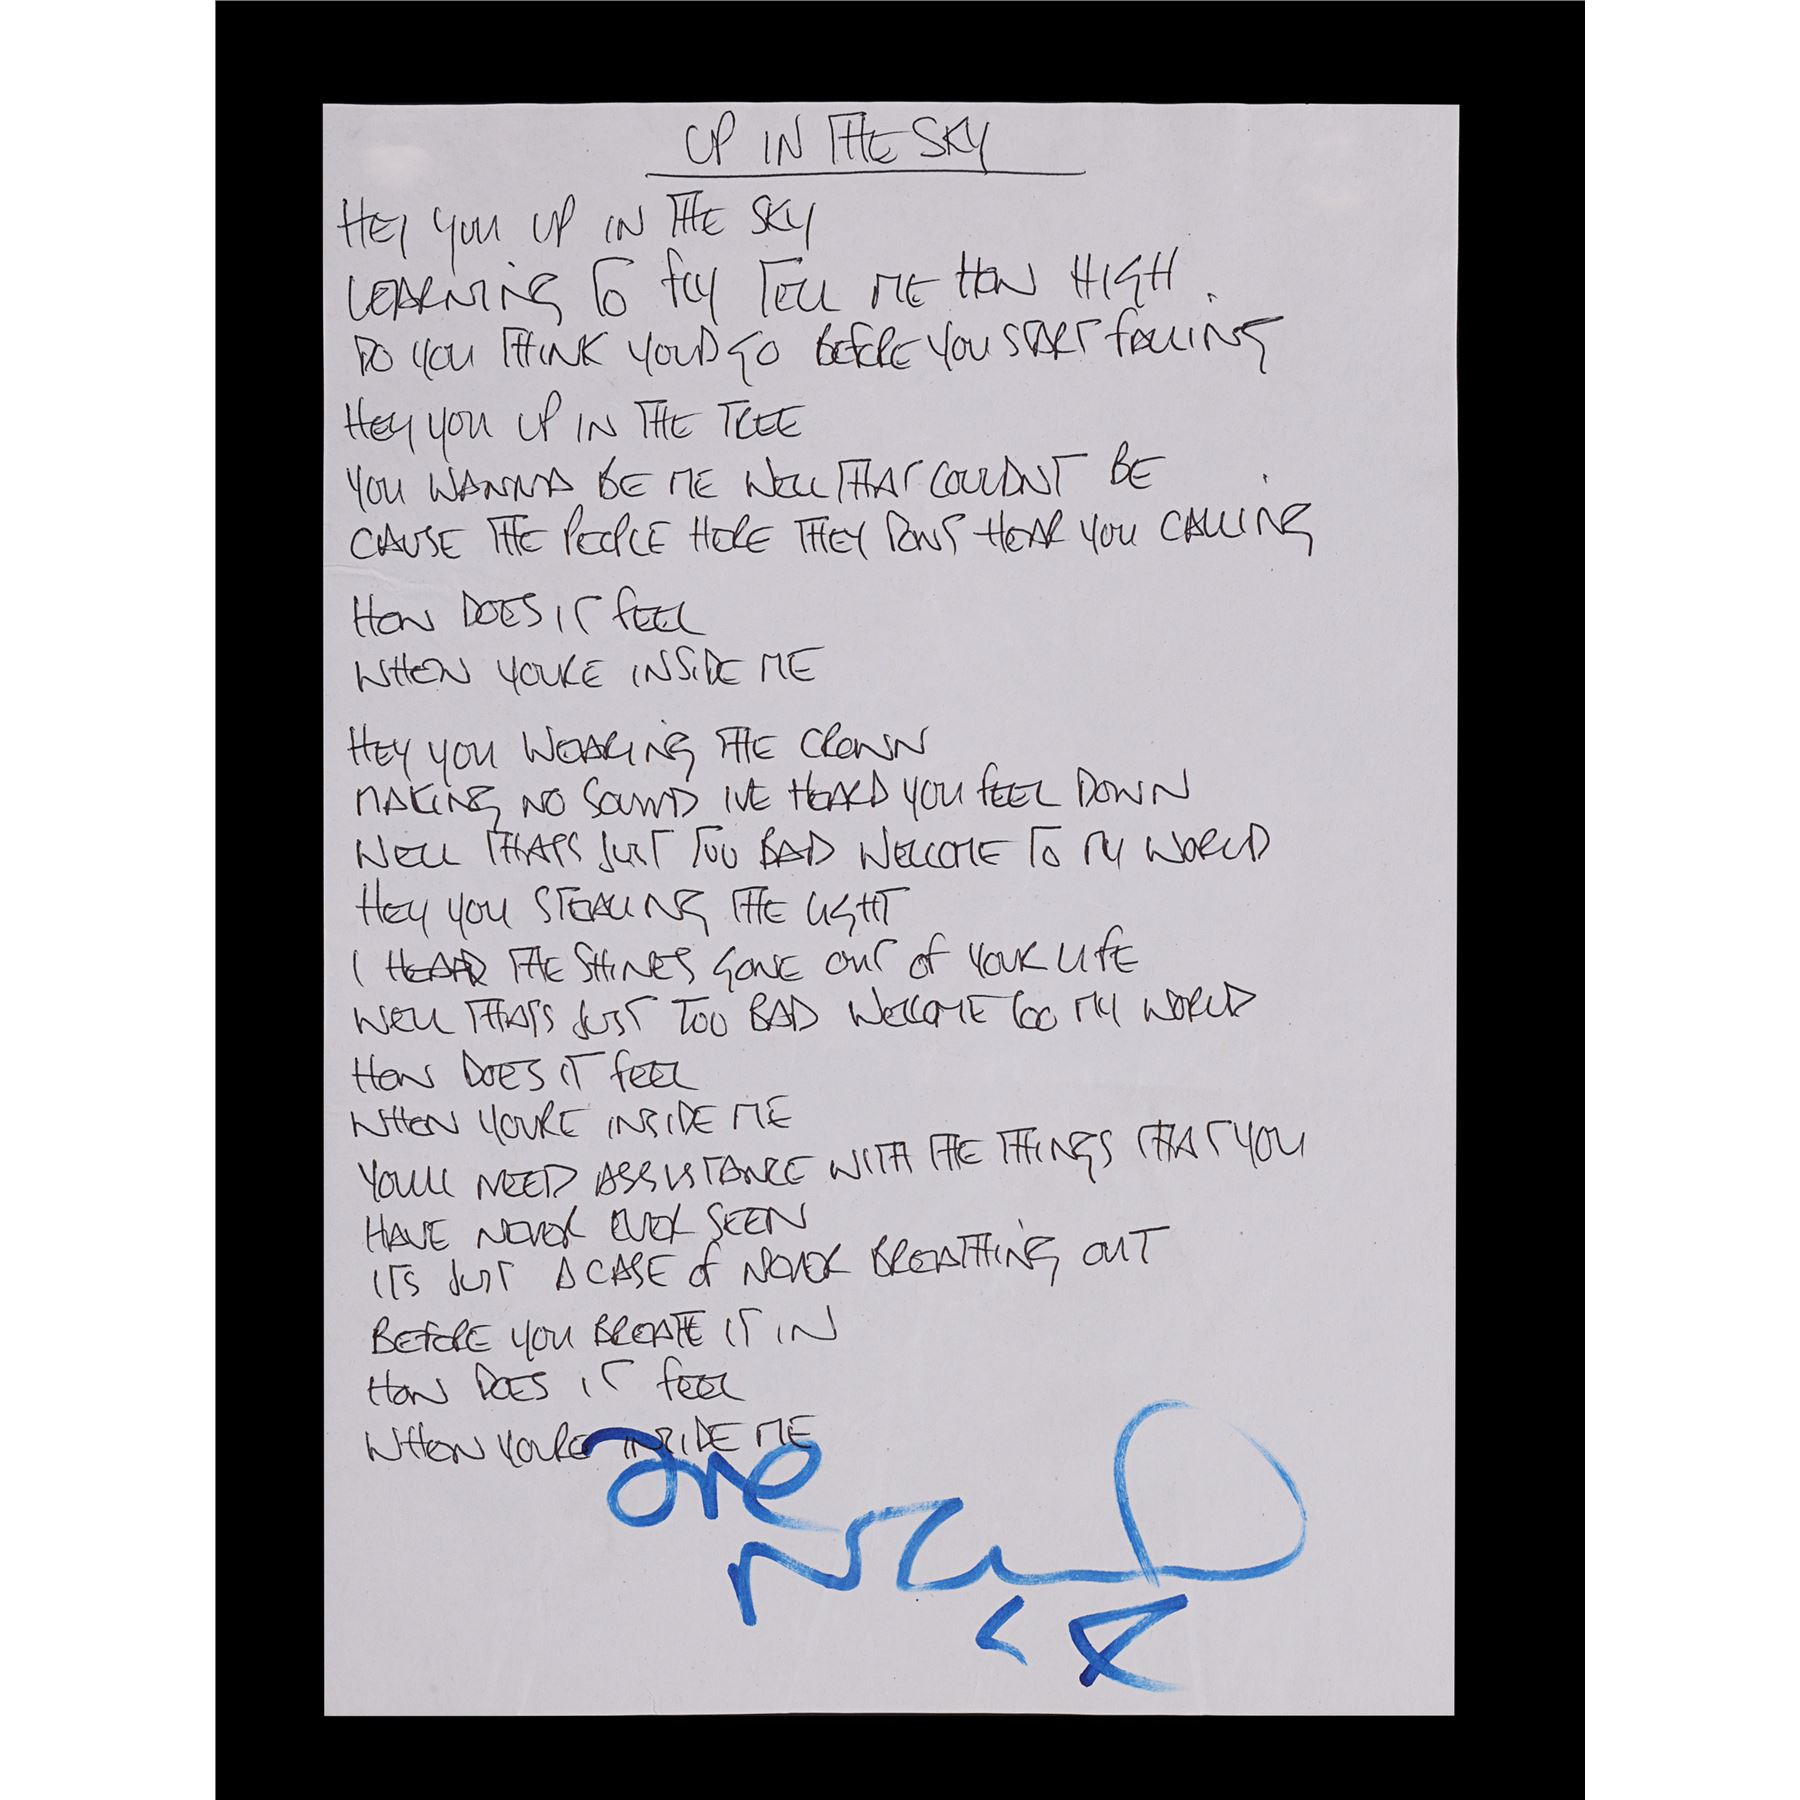 UP IN THE SKY
HEY YOU UP IN THE SKY
LEARNING TO FLY TELL ME HOW HIGH
DO YOU THINK YOUD GO BEFORE YOU START FALLING
HEY YOU UP IN THE TREE
YOU WANNA BE ME WELL THAT COULDNT BE
CAUSE THE PEOPLE HERE THEY DONT HEAR YOU CALLING
HOW DOES IT FEEL
WHEN YOURE INSIDE ME
HEY YOU WEARING THE CROWN
MAKING NO SOUND IVE HEARD YOU FEEL DOWN
WELL THATS JUST TOO BAD WELCOME TO MY WORLD
HEY YOU STEALING THE LIGHT
I HEARD THE SHINES GONE OUT OF YOUR LIFE
WELL THATS JUST TOO BAD WELCOME TOO MY WORLD
HOW DOES IT FEEL
WHEN YOURE INSIDE ME
YOULL NEED ASSISTANCE WITH THE THINGS THAT YOU
HAVE NEVER EVER SEEN
ITS JUST A CASE OF NEVER BREATHING OUT
BEFORE YOU BREATHE IT IN
HOW DOES IT FEEL
WHEN YOURE INSIDE ME